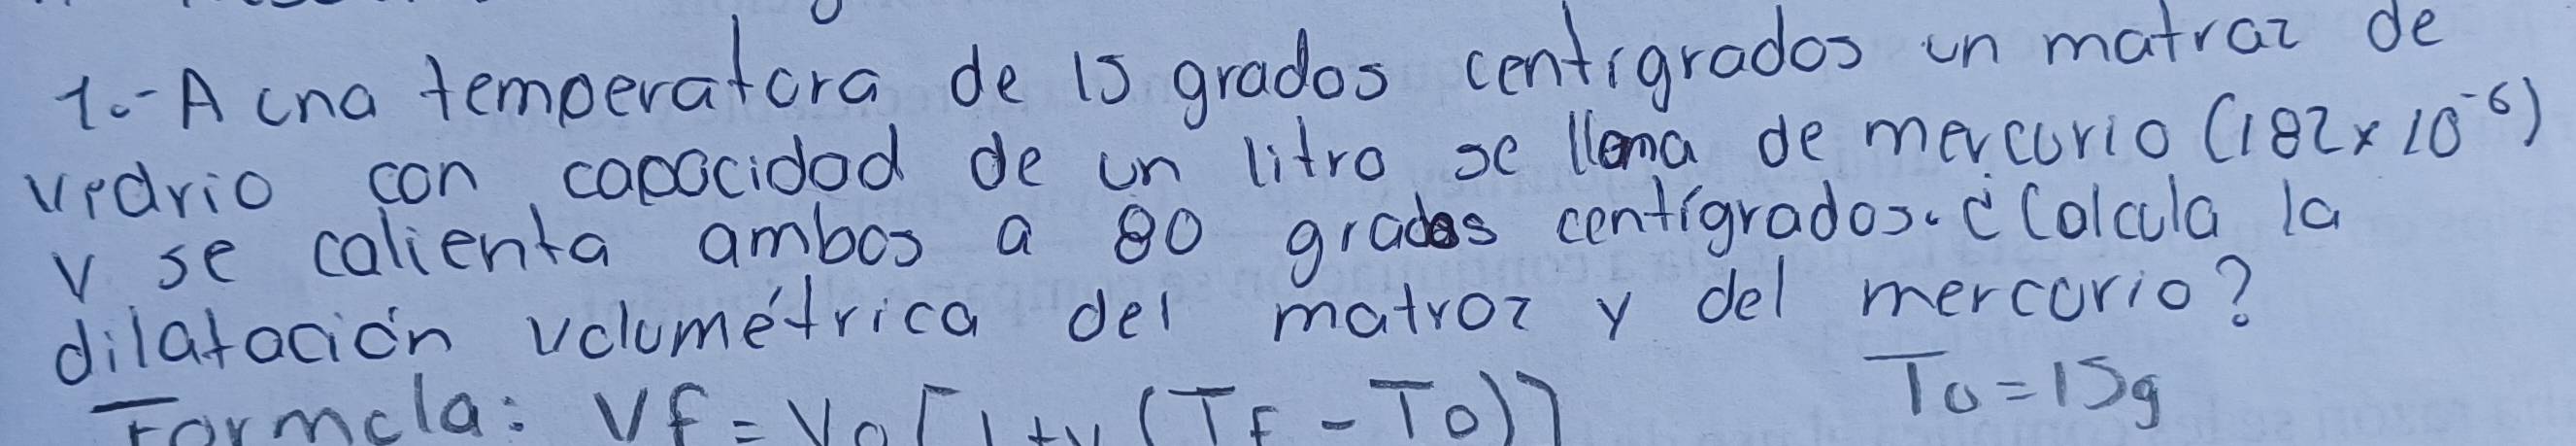 1.- A una temperatura de 15 grados centigrados un matraz de
vidrio con capacidad de un litro se llena de mercurio (182x10⁻⁶)
y se calienta ambos a 80 grados centígrados. ¿Calcula la
dilatación volumétrica del matraz y del mercurio?
To=15g
Formula: Vf = Vo[1+γ(TF-To)]